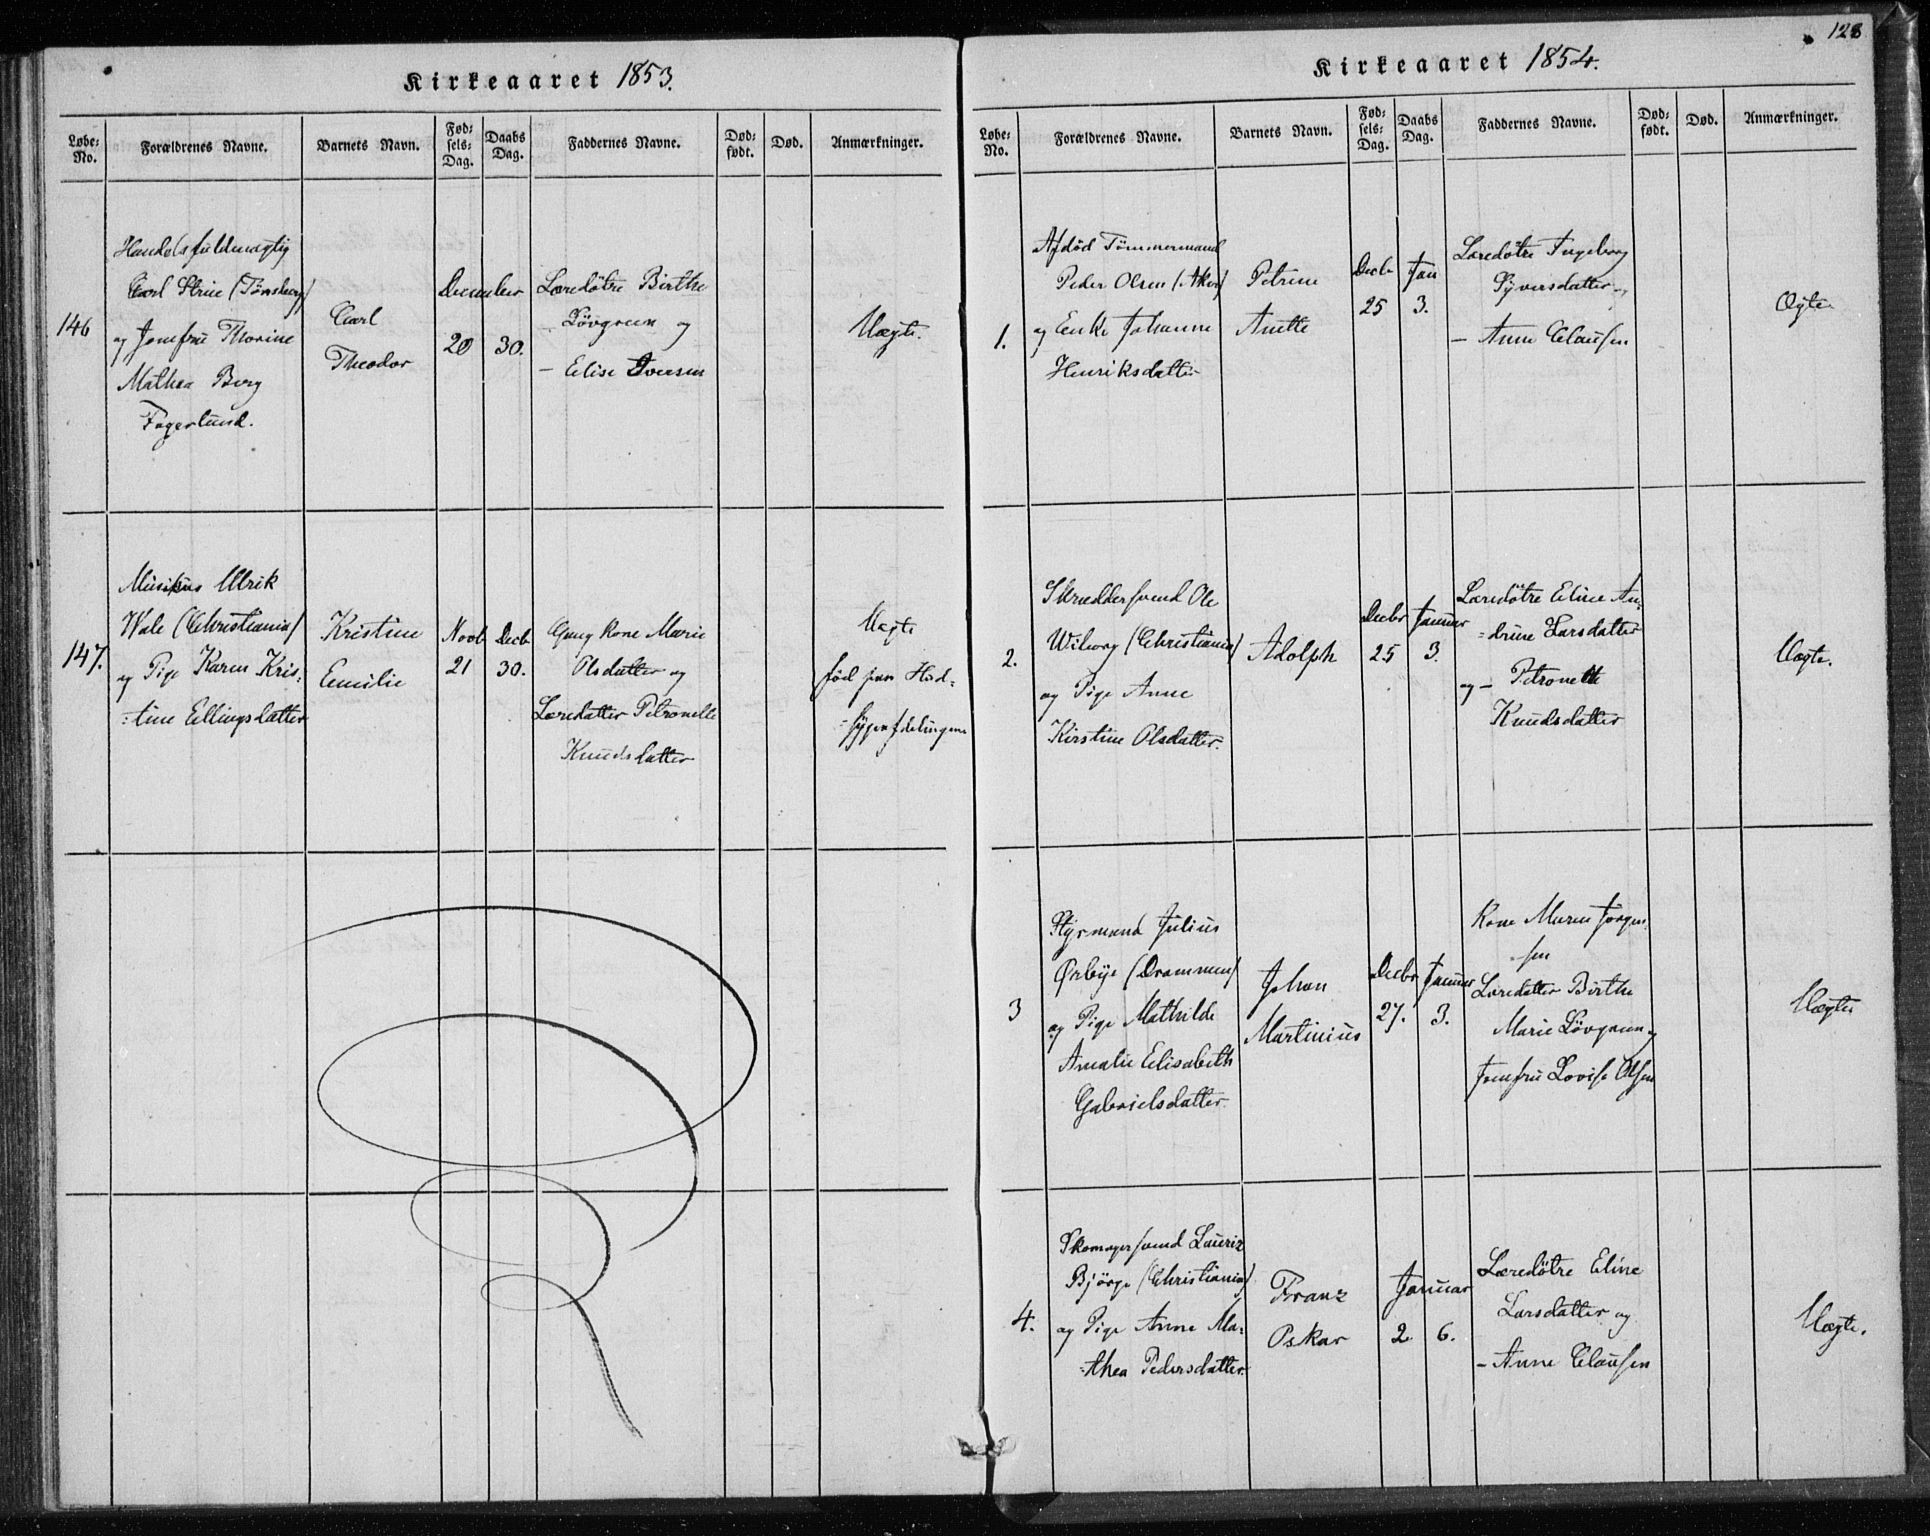 Kirkeaaret 1853.
Løbe-No. Forældrenes Navne. Barnets Navn. Fød-sels-Dag. Daabs Dag. Faddernes Navne. Død-født. Død. Anmærkninger.
146
Handelsfuldmægtig
Carl Strue (Tønsberg)
og Jomfru Thorine
Mathea Berg
Fagerlund.
Carl
Theodor
December
20 30.
Læredøtre Birthe
Lövgreen og
— Elise Iversen
Uægte.
147.
Musikus Ulrik
Wale (Christiania)
og Pige Karen Kris-
-tine Ellingsdatter
Kristine
Emilie
Novb Decb
21 30.
Gang Kone Marie
Olsdatter og
Læredatter Petronelle
Knudsdatter
Uægte
fød paa Hud-
-sygeafdelingen
128
Kirkeaaret 1854.
Løbe-No. Forældrenes Navne. Barnets Navn. Fød-sels-Dag. Daabs Dag. Faddernes Navne. Død-født. Død. Anmærkninger.
1.
Afdød Tømmermand
Peder Olsen (Aker)
og Enke Johanne
Henriksdatter
Petrine
Anette
Decb Jan
25 3.
Læredøtre Ingeborg
Syversdatter
— Anne Clausen
Ægte
2.
Skræddersvend Ole
Wiborg (Christiania)
og Pige Anne
Kirstine Olsdatter.
Adolph
Decbr Januar
25 3.
Læredøtre Eline An-
-drine Larsdatter
og — Petronelle
Knudsdatter
Uægte.
3
Styrmand Julius
Ørbye (Drammen)
og Pige Mathilde
Amalie Elisabeth
Gabrielsdatter.
Johan
Martinius
Decbr Januar
27. 3.
Kone Maren Jørgen
-sen
Læredatter Birthe
Marie Lövgreen og
Jomfru Lovise Olsen
Uægte
4.
Skomagersvend Lauriz
Bjørge (Christiania)
og Pige Anne Ma-
-thea Pedersdatter.
Franz
Oskar
Januar
2 6.
Læredøtre Eline
Larsdatter og
— Anne Clausen
Uægte.